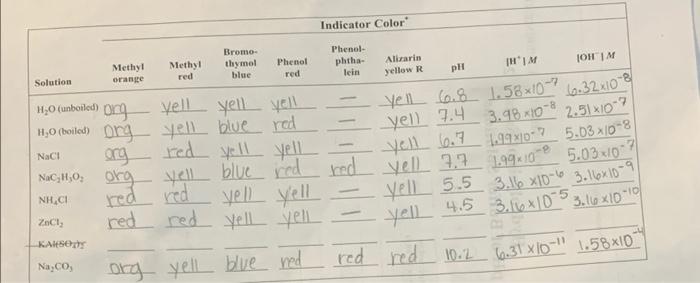 Indicator Color*
Solution Methyl orange Methyl red Bromo-thymol blue Phenol red Phenol-phtha-lein Alizarin yellow R pH [H⁺] M [OH⁻] M
H₂O (unboiled) org yell yell yell — yell 6.8 1.58×10⁻⁷ 6.32×10⁻⁸
H₂O (boiled) org yell blue red — yell 7.4 3.98×10⁻⁸ 2.51×10⁻⁷
NaCl org red yell yell — yell 6.7 1.99×10⁻⁷ 5.03×10⁻⁸
NaC₂H₃O₂ org yell blue red red yell 7.7 1.99×10⁻⁸ 5.03×10⁻⁷
NH₄Cl red red yell yell — yell 5.5 3.16×10⁻⁶ 3.16×10⁻⁹
ZnCl₂ red red yell yell — yell 4.5 3.16×10⁻⁵ 3.16×10⁻¹⁰
KAl(SO₄)₂
Na₂CO₃ org yell blue red red red 10.2 6.31×10⁻¹¹ 1.58×10⁻⁴